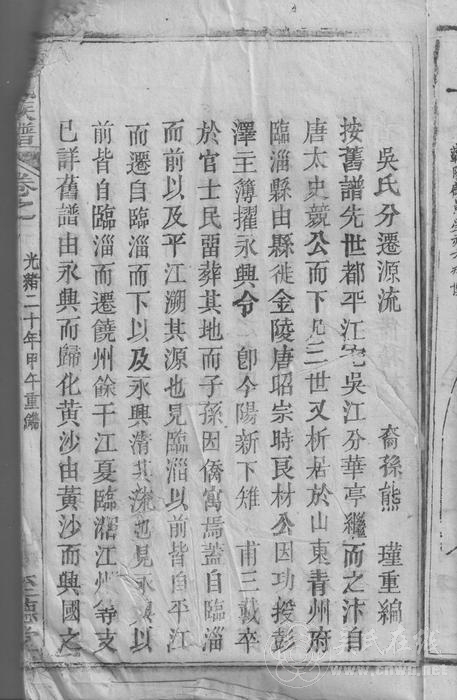 吳氏分遷源流　裔孫熊　瑾重編
按舊譜先世都平江宅吳江分華亭繼而之汴自
唐太史競公而下凡三世又析居於山東青州府
臨淄縣由縣徙金陵唐昭宗時良材公因功授彭
澤主簿擢永興令　卽今陽新下雉　甫三載卒
於官士民畱葬其地而子孫因僑寓焉蓋自臨淄
而前以及平江溯其源也見臨淄以前皆自平江
而遷自臨淄而下以及永興清其流也見永興以
前皆自臨淄而遷饒州餘干江夏臨湘江州等支
已詳舊譜由永興而歸化黃沙由黃沙而興國之
氏譜
卷之
光緒二十年甲午重鐫
至德堂
吴氏在线
www.cnwu.net